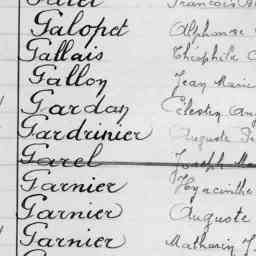 Galopet Alphonse
Gallais Théophile
Gallon Jean Marie
Gardan Célestin
Gardrinier Auguste
Garel Joseph
Garnier Hyacinthe
Garnier Auguste
Garnier Mathurin J